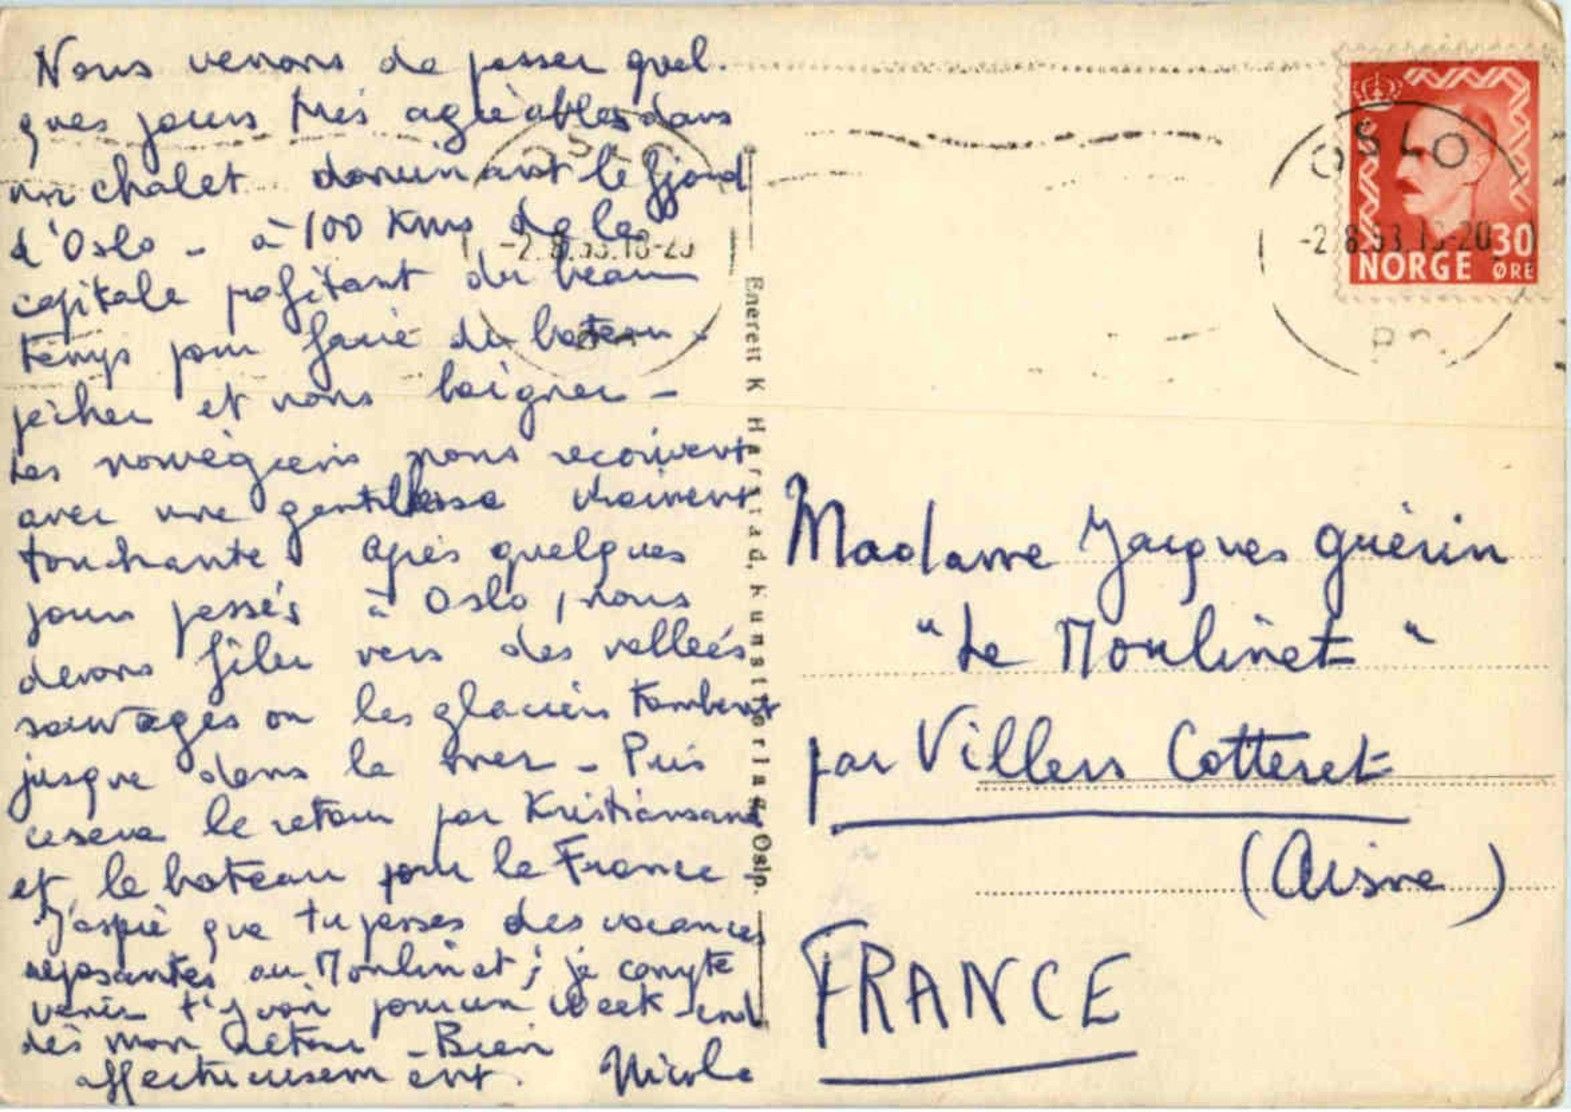 Nous venons de passer quel-
ques jours très agréables dans
un chalet dominant le fjord
d'Oslo - à 100 Kms de la
capitale profitant du beau
temps pour faire du bateau -
pêcher et nous baigner -
Les norvégiens nous reçoivent
avec une gentillesse vraiment
touchante. Après quelques
jours passés à Oslo, nous
devons filer vers des vallées
sauvages ou les glaciers tombent
jusque dans la mer - Puis
ce sera le retour par Kristiansand
et le bateau pour la France
J'espère que tu passes des vacances
reposantes au Moulinet ; je compte
venir t'y voir pour un week-end
dès mon retour - Bien
affectueusement. Nicole
Enerett K Harstad, Kunstforlag, Oslo.
OSLO
-2.8.53.18-20
OSLO
-2.8.53.18-20
30
NORGE ØRE
Madame Jacques Guérin
"Le Moulinet"
par Villers Cotteret
(Aisne)
FRANCE